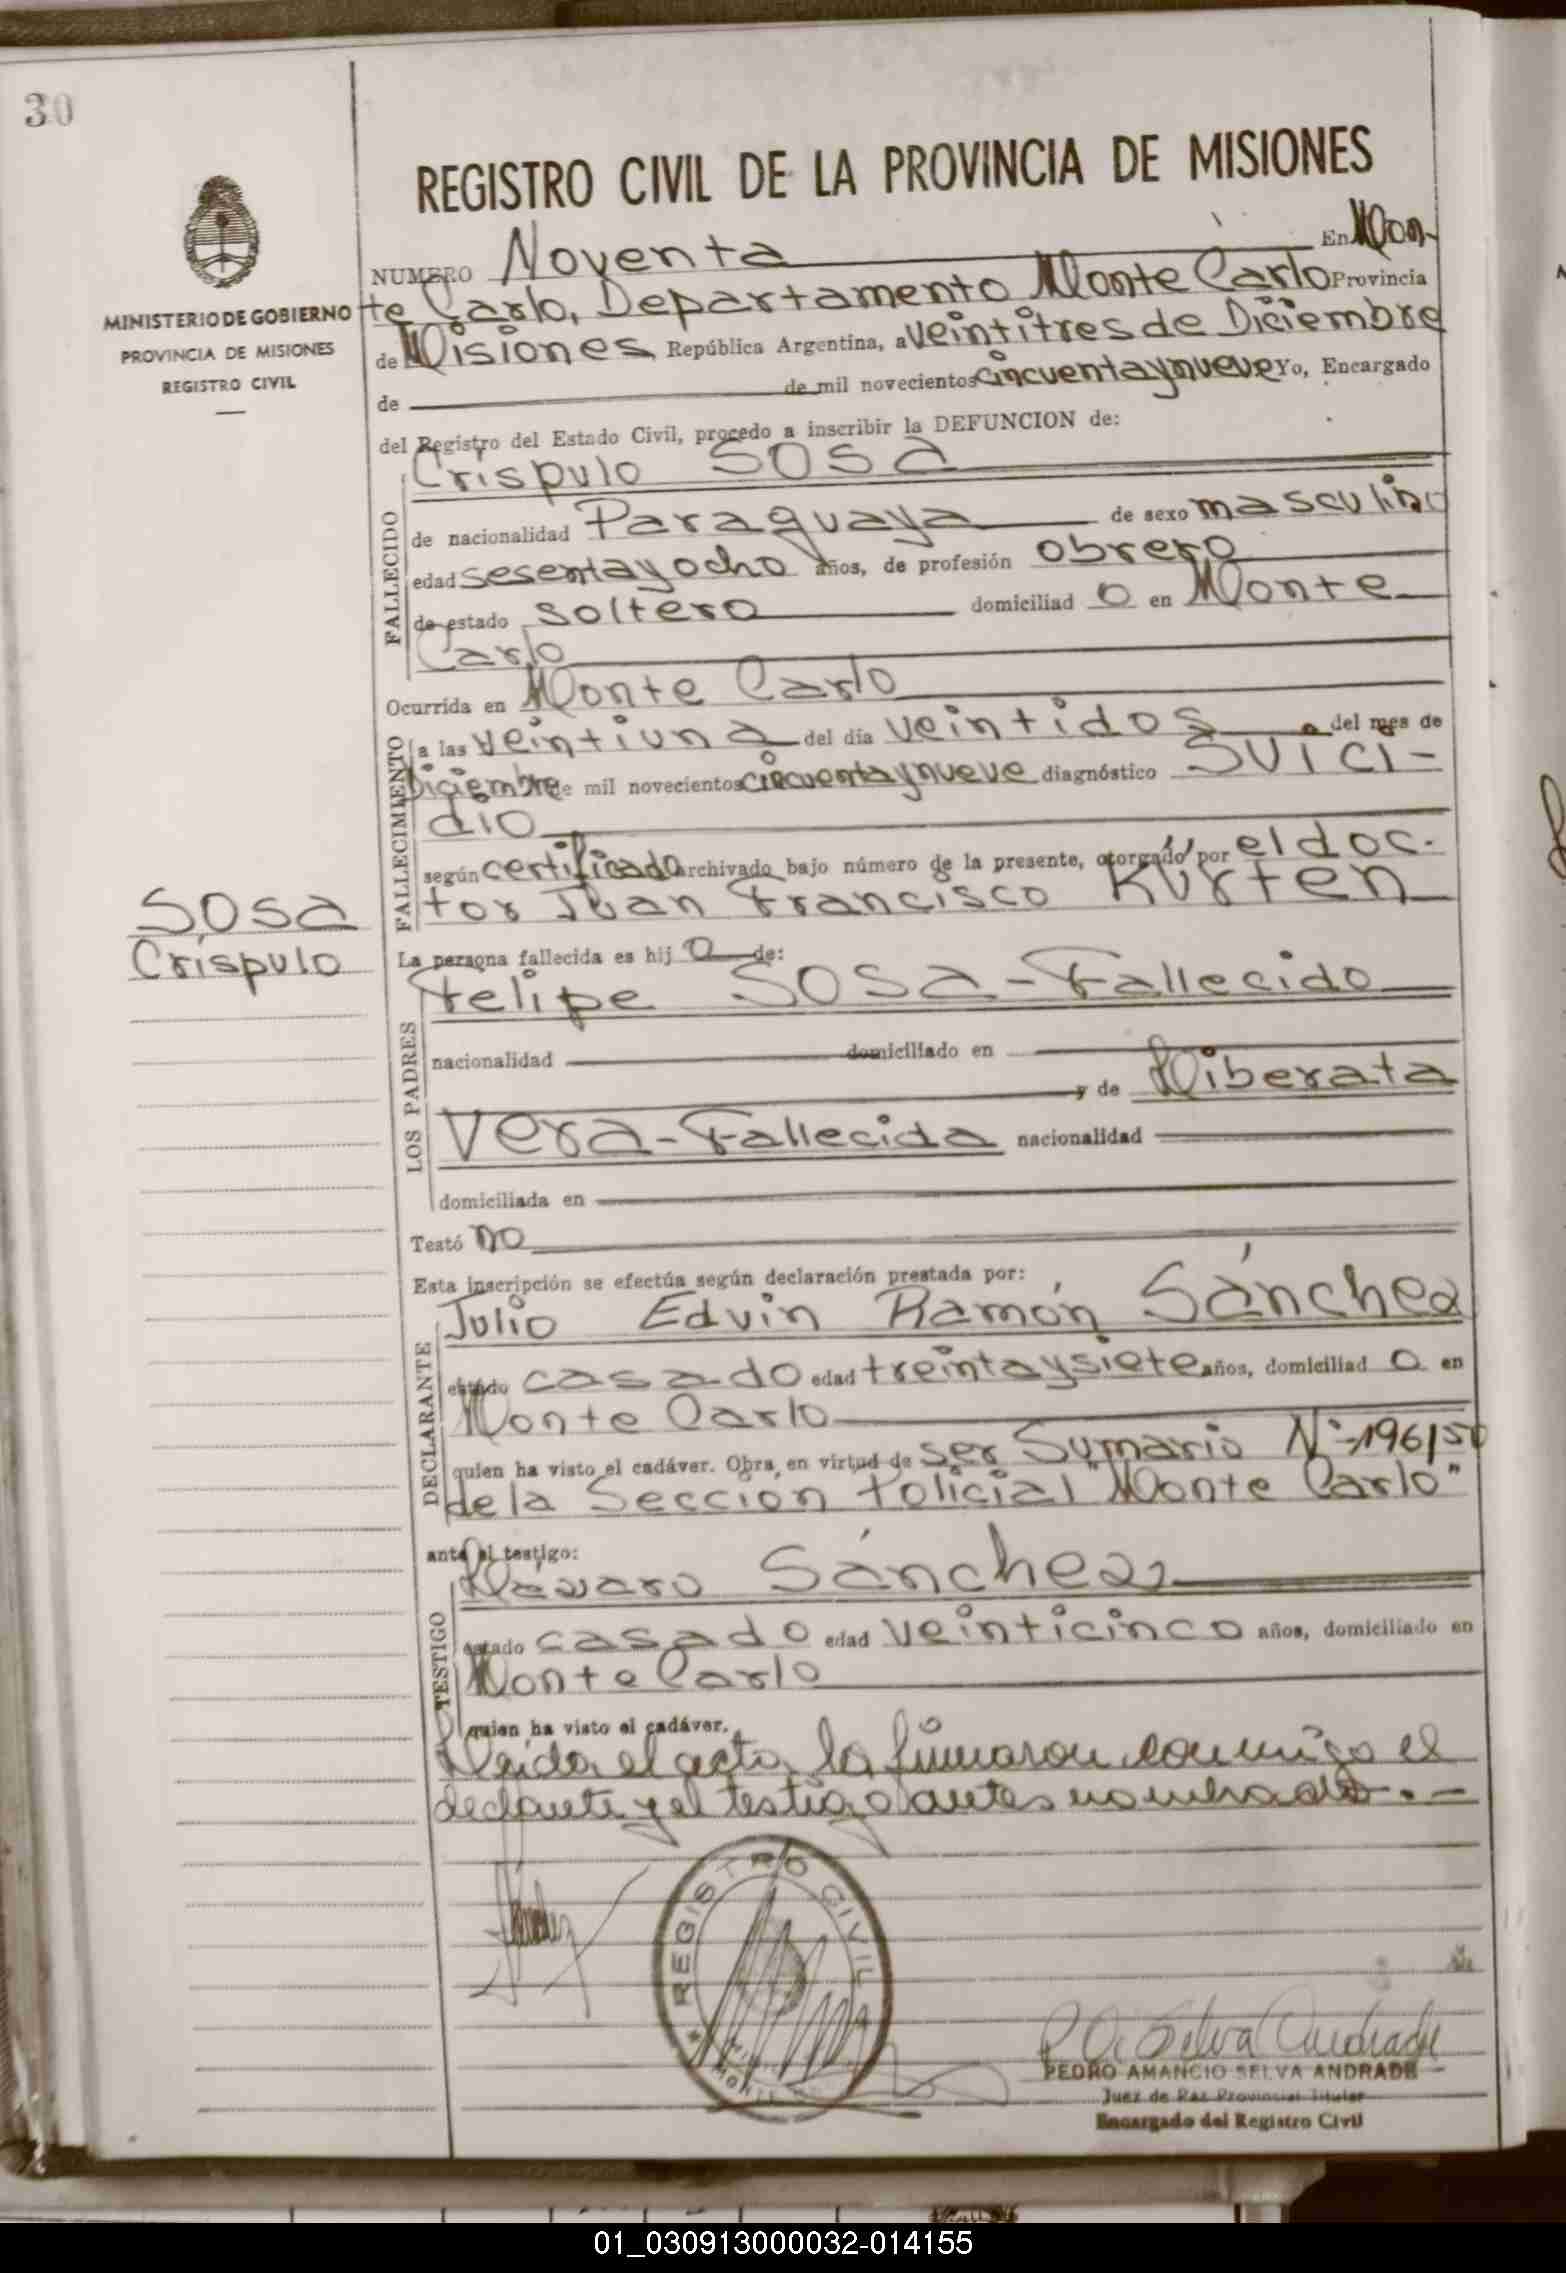 30
REGISTRO CIVIL DE LA PROVINCIA DE MISIONES
MINISTERIO DE GOBIERNO
PROVINCIA DE MISIONES
REGISTRO CIVIL
NUMERO Noventa En Mon-
te Carlo, Departamento Monte Carlo Provincia
de Misiones República Argentina, a veintitres de Diciembre
de de mil novecientos cincuentaynueve Yo, Encargado
del Registro del Estado Civil, procedo a inscribir la DEFUNCION de:
FALLECIDO
Críspulo SOSA
de nacionalidad Paraguaya de sexo masculino
edad sesentayocho años, de profesión obrero
de estado soltero domiciliad o en Monte
Carlo
Ocurrida en Monte Carlo
FALLECIMIENTO
a las veintiuna del día veintidos del mes de
Diciembre de mil novecientos cincuentaynueve diagnóstico SUICI-
dio
según certificado archivado bajo número de la presente, otorgado por el doc-
tor Juan Francisco Kürten
SOSA
Críspulo
La persona fallecida es hij o de:
LOS PADRES
Felipe SOSA - Fallecido
nacionalidad domiciliado en
y de Liberata
Vera - Fallecida nacionalidad
domiciliada en
Testó no
Esta inscripción se efectúa según declaración prestada por:
DECLARANTE
Julio Edvin Ramón Sánchez
estado casado edad treintaysiete años, domiciliad o en
Monte Carlo
quien ha visto el cadáver. Obra en virtud de ser Sumario Nº 196/59
de la Sección Policial "Monte Carlo"
ante el testigo:
TESTIGO
Sánchez
estado casado edad veinticinco años, domiciliado en
Monte Carlo
quien ha visto el cadáver.
Leída el acta, la firmaron conmigo el
declarante y el testigo antes nombrado.-
REGISTRO CIVIL
P. A. Selva Andrade
PEDRO AMANCIO SELVA ANDRADE
Juez de Paz Provincial Titular
Encargado del Registro Civil
01_030913000032-014155